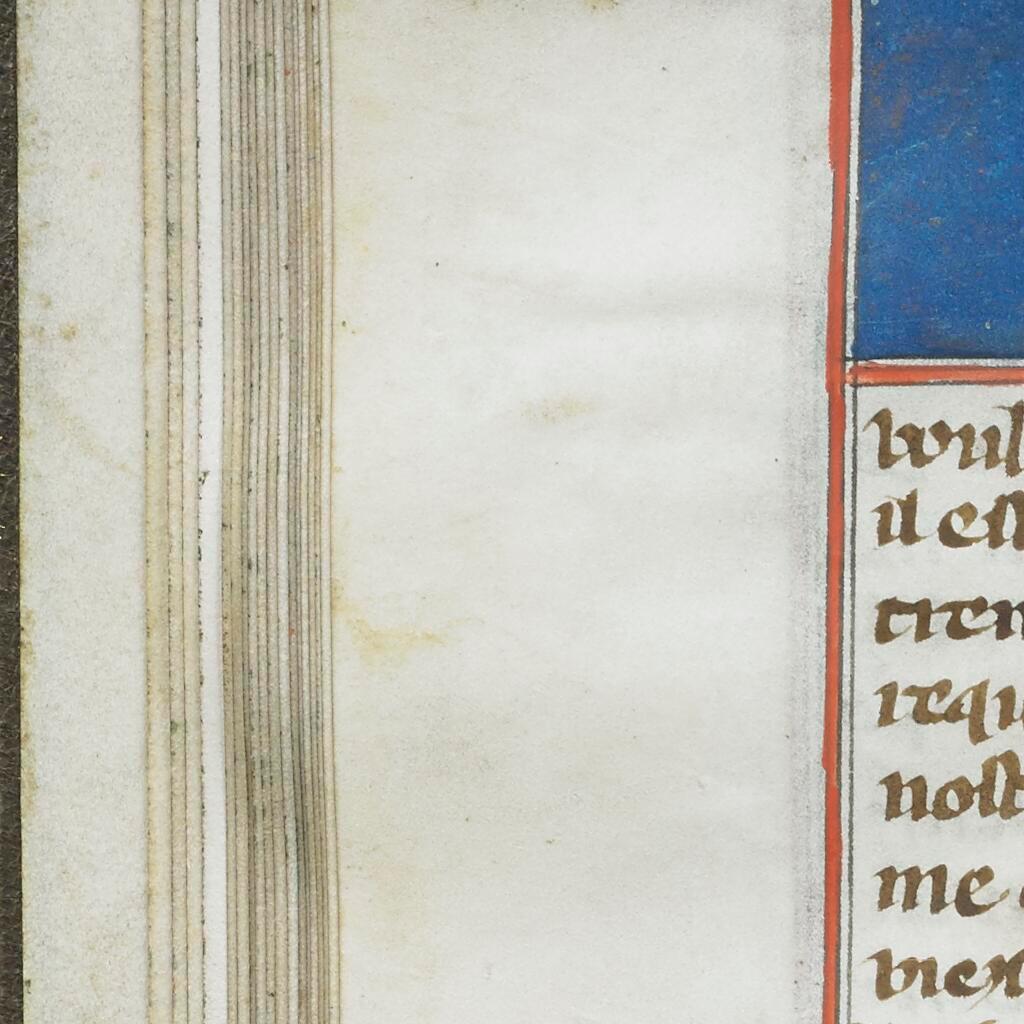 voul
il est
trem
requi
nost
me
vien